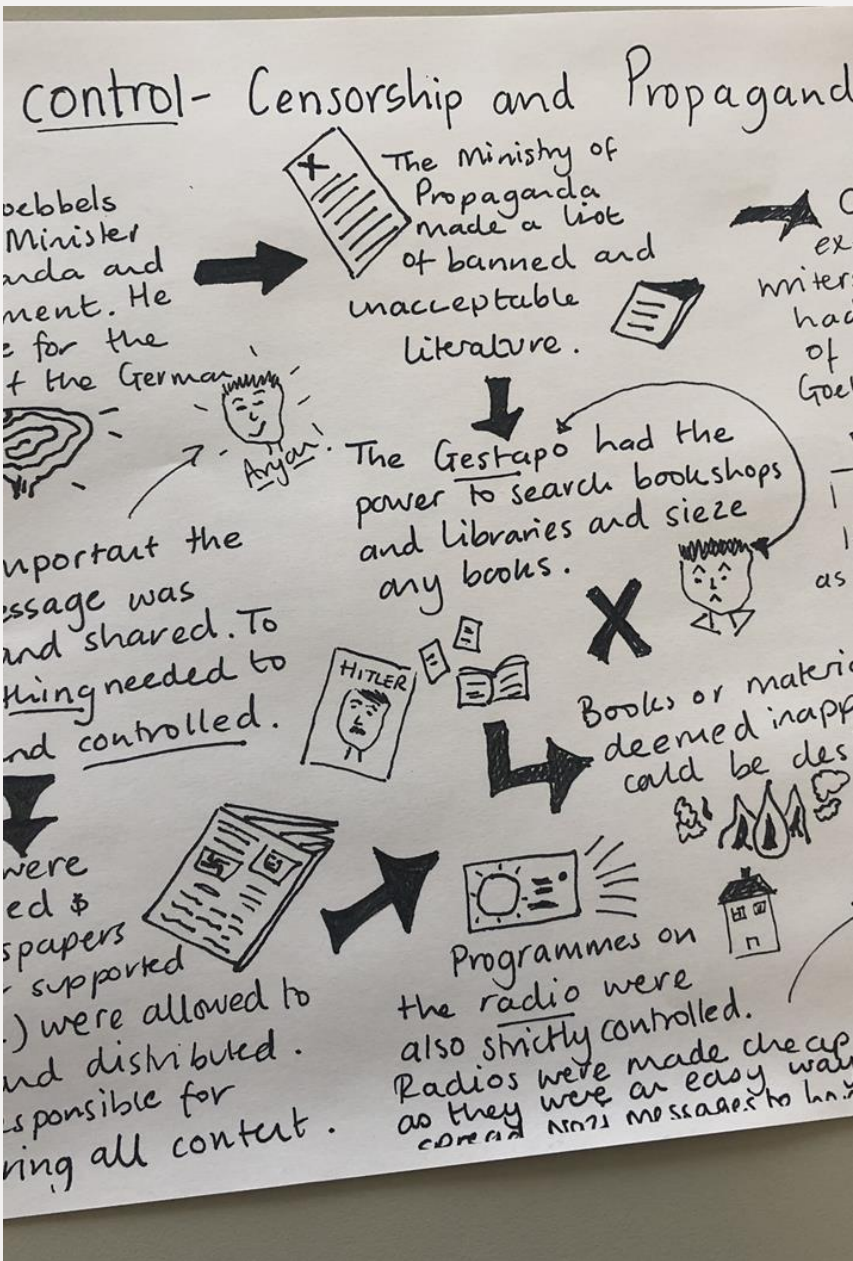 control - Censorship and Propagand
oebbels
Minister
anda and
ment. He
e for the
f the German
Aryan!
mportant the
essage was
and shared. To
thing needed to
nd controlled.
were
ed $
spapers
r supported
.) were allowed to
nd distributed.
sponsible for
ring all content.
The Ministry of
Propaganda
made a list
of banned and
unacceptable
literature.
The Gestapo had the
power to search bookshops
and libraries and sieze
any books.
HITLER
Books or materia
deemed inapp
could be des
Programmes on
the radio were
also strictly controlled.
Radios were made cheap
as they were an easy way
spread nazi messages to
ex
writers
had
of
Goe
as